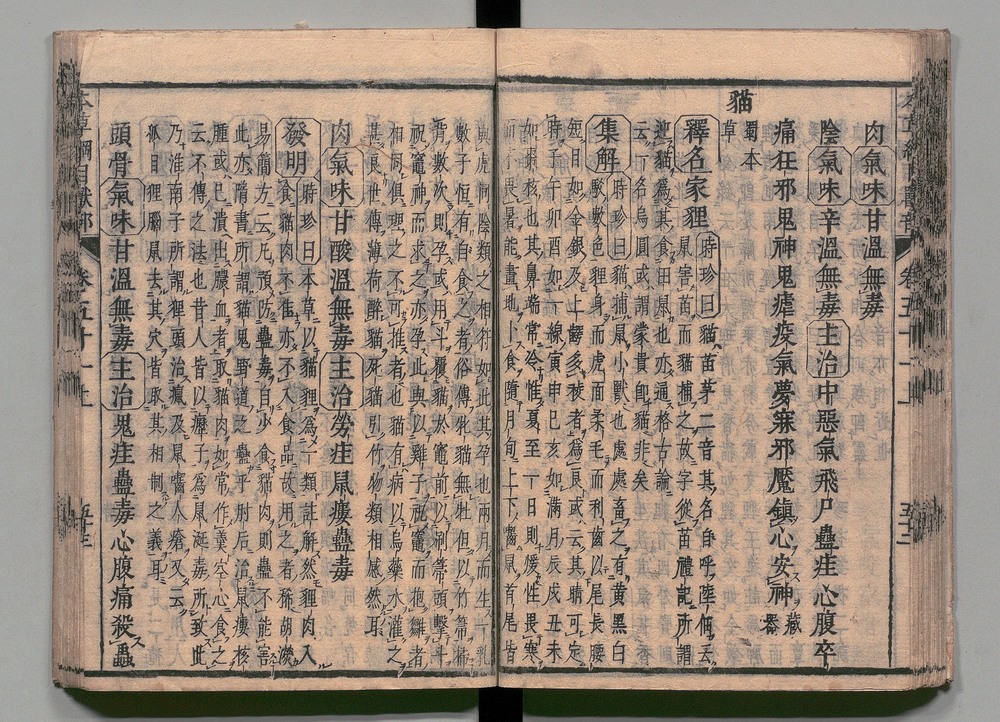 肉氣味甘溫無毒
陰氣味辛溫無毒主治中惡氣飛尸蠱疰心腹卒
痛狂邪鬼神鬼瘧疫氣夢寐邪魘鎮心安神藏器
貓
蜀本草
釋名家狸時珍曰貓苗茅二音其名自呼陸佃云
鼠害苗而貓捕之故字從苗禮記所謂
迎貓為其食田鼠也亦通格古論
云一名烏圓或謂蒙貴卽貓非矣
集解時珍曰貓捕鼠小獸也處處畜之有黃黑白
駁數色狸身而虎面柔毛而利齒以尾長腰
短目如金銀及上齶多稜者為良或云其睛可定
時子午卯酉如一線寅申巳亥如滿月辰戌丑未
如棗核也其鼻端常冷惟夏至一日則煖性畏寒
而不畏暑能畫地卜食隨月旬上下齧鼠首尾皆
與虎同陰類之相符如此其孕也兩月而生一乳
數子恒有自食之者俗傳牝貓無牡但以竹箒掃
背數次則孕或用斗覆貓於竈前以刷箒頭擊斗
祝竈神而求之亦孕此與以雞子祝竈而抱雛者
相同俱理之不可推者也貓有病以烏藥水灌之
甚良世傳薄荷醉貓死貓引竹物類相感然耳
肉氣味甘酸溫無毒主治勞疰鼠瘻蠱毒
發明時珍曰本草以貓狸為一類註解然狸肉入
食貓肉不佳亦不入食品故用之者稀胡濙
易簡方云凡預防蠱毒自少食貓肉則蠱不能害
此亦隋書所謂貓鬼野道之蠱乎肘后治鼠瘻核
腫或已潰出膿血者取貓肉如常作羹空心食之
云不傳之法也昔人皆以癧子為鼠涎毒所致此
乃淮南子所謂狸頭治瘋及鼠嚙人瘡又云
狐目狸腦鼠去其穴皆取其相制之義耳
頭骨氣味甘溫無毒主治鬼疰蠱毒心腹痛殺蟲